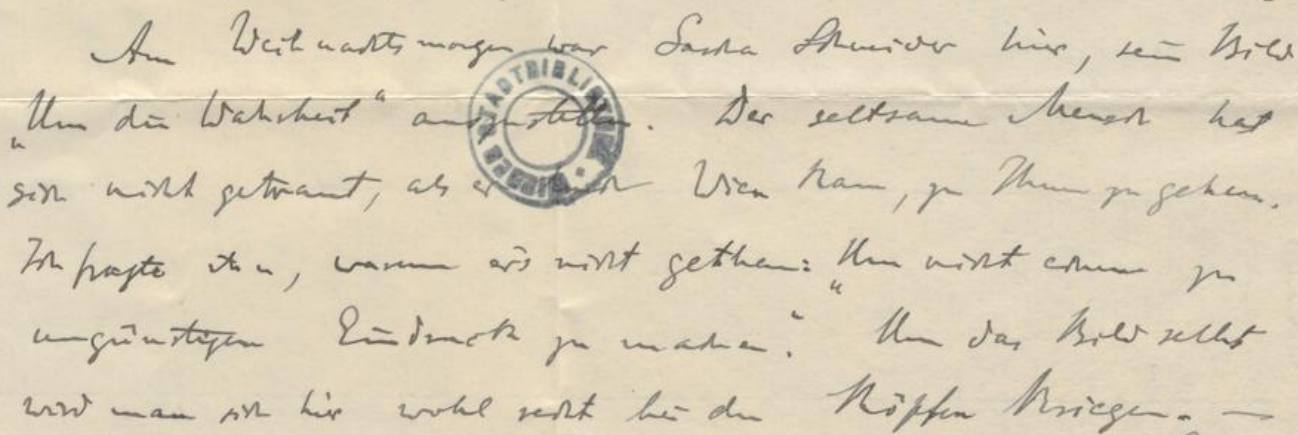 Am Weihnachtsmorgen war Sascha Schneider hier, sein Bild
„Um die Wahrheit“ auszustellen. Der seltsame Mensch hat
sich nicht getraut, als er nach Wien kam, zu Ihnen zu gehen.
Ich fragte ihn, warum er's nicht gethan: „Um nicht einen zu
ungünstigen Eindruck zu machen.“ Um das Bild selbst
wird man sich hier wohl recht bei den Köpfen kriegen. —
WIENER STADTBIBLIOTHEK